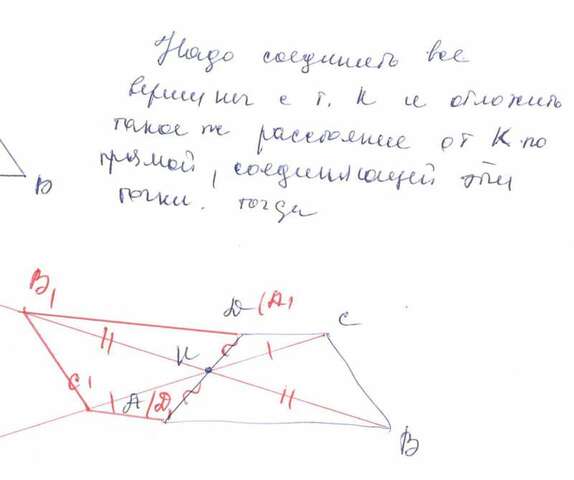 Надо соединить все
вершины с т. К и отложить
такое же расстояние от К по
прямой, соединяющей эти
точки. тогда
D
B₁
D(A₁
C
K
C₁
A(D₁
B